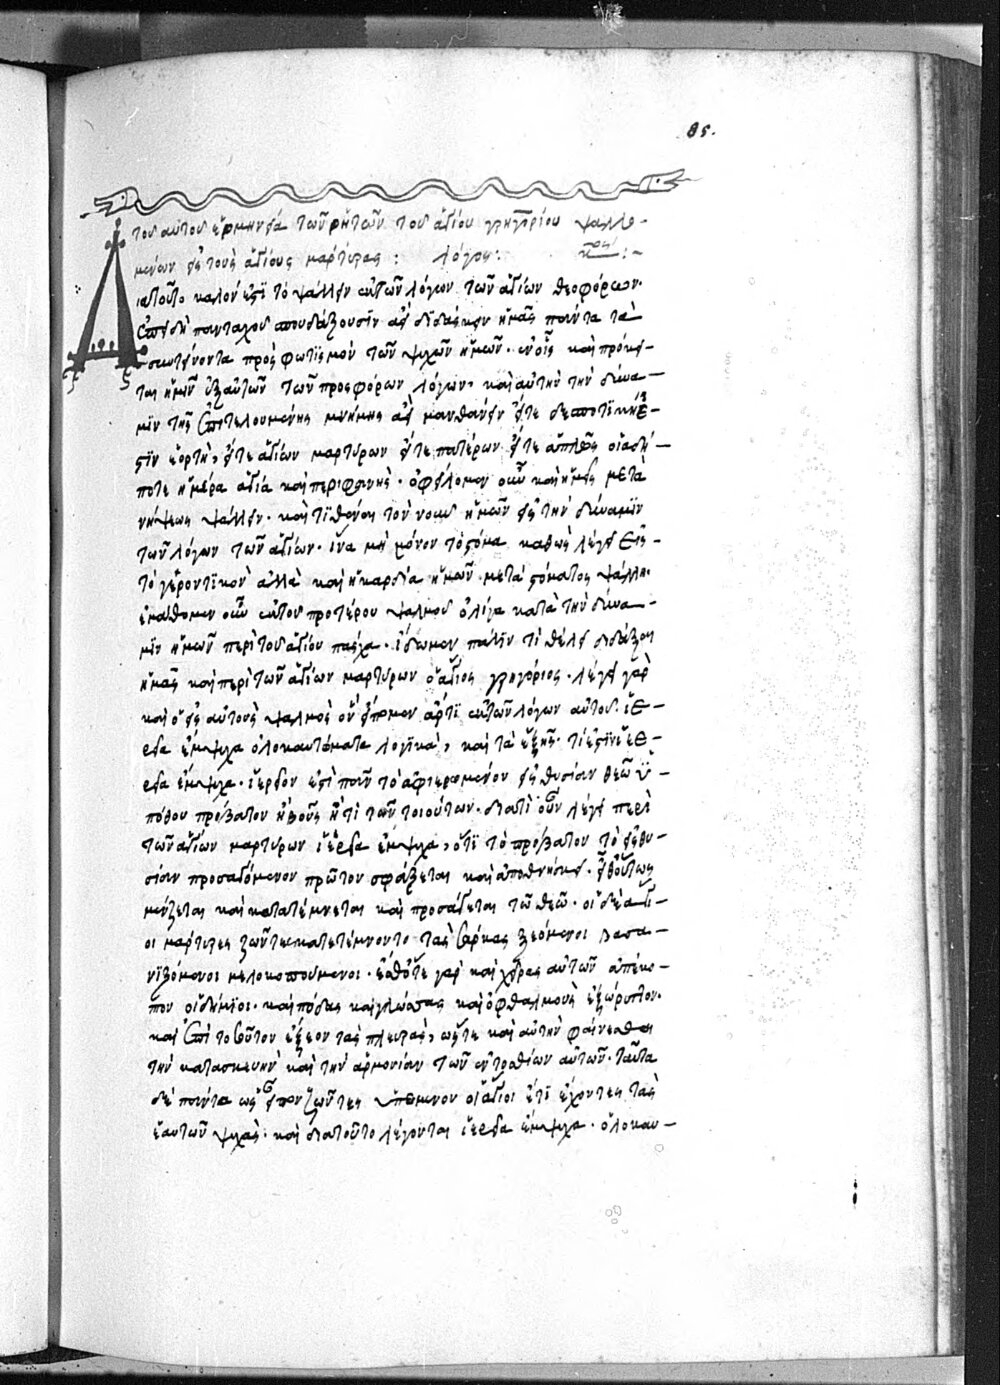 85.
τοῦ αὐτοῦ ἑρμηνεία τῶν ῥητῶν τοῦ ἁγίου γρηγορίου ψαλλο-
μένων εἰς τοὺς ἁγίους μάρτυρας : λόγος
Διατοῦτο καλόν ἐστι τὸ ψάλλειν ἐκ τῶν λόγων τῶν ἁγίων θεοφόρων.
ἐπειδὴ πανταχοῦ σπουδάζουσιν ἀεὶ διδάσκειν ἡμᾶς πάντα τὰ
συντείνοντα πρὸς φωτισμὸν τῶν ψυχῶν ἡμῶν. ἐν οἷς καὶ πρόκει-
ται ἡμῖν ἐξ αὐτῶν τῶν προσφόρων λόγων, καὶ αὐτὴν τὴν δύνα-
μιν τῆς ἐπιτελουμένης μνήμης ἀεὶ μανθάνειν εἴτε δεσποτικὴ ἐ-
στιν ἑορτὴ, εἴτε ἁγίων μαρτύρων εἴτε πατέρων εἴτε ἁπλῶς οἱαδή-
ποτε ἡμέρα ἁγία καὶ περιφανής. ὀφείλομεν οὖν καὶ ἡμεῖς μετὰ
νήψεως ψάλλειν. καὶ τιθέναι τὸν νοῦν ἡμῶν εἰς τὴν δύναμιν
τῶν λόγων τῶν ἁγίων. ἵνα μὴ μόνον τὸ στόμα καθὼς λέγει εἰς
τὸ γεροντικὸν ἀλλὰ καὶ ἡ καρδία ἡμῶν μετὰ στόματος ψάλλῃ.
ἐμάθομεν οὖν ἐκ τοῦ προτέρου ψαλμοῦ ὀλίγα κατὰ τὴν δύνα-
μιν ἡμῶν περὶ τοῦ ἁγίου πάσχα. ἴδωμεν πάλιν τί θέλει διδάξαι
ἡμᾶς καὶ περὶ τῶν ἁγίων μαρτύρων ὁ ἅγιος γρηγόριος. λέγει γὰρ
καὶ ὁ εἰς αὐτοὺς ψαλμὸς ὃν εἴπομεν ἄρτι ἐκ τῶν λόγων αὐτοῦ. ἱε-
ρεῖα ἔμψυχα ὁλοκαυτώματα λογικὰ, καὶ τὰ ἑξῆς. τί ἐστιν ἱε-
ρεῖα ἔμψυχα. ἱερεῖον ἐστὶ πᾶν τὸ ἀφιερωμένον εἰς θυσίαν θεῶ ὑ-
πόθου πρόβατον ἢ βοῦς ἤ τι τῶν τοιούτων. διατί οὖν λέγει περὶ
τῶν ἁγίων μαρτύρων ἱερεῖα ἔμψυχα, ὅτι τὸ πρόβατον τὸ εἰς θυ-
σίαν προσαγόμενον πρῶτον σφάζεται καὶ ἀποθνήσκει. εἶθ' οὕτως
μελίζεται καὶ κατατέμνεται καὶ προσάγεται τῶ θεῶ. οἱ δὲ ἅγι-
οι μάρτυρες ζῶντες κατετέμνοντο τὰς σάρκας ξεόμενοι βασα-
νιζόμενοι μελοκοπούμενοι. ἔσθ' ὅτε γὰρ καὶ χεῖρας αὐτῶν ἀπέκο-
πτον οἱ δήμιοι. καὶ πόδας καὶ γλώσσας καὶ ὀφθαλμοὺς ἐξώρυττον.
καὶ ἐπὶ τοσοῦτον ἔξεον τὰς πλευρὰς, ὥστε καὶ αὐτὴν φαίνεσθαι
τὴν κατασκευὴν καὶ τὴν ἁρμονίαν τῶν ἐντοσθίων αὐτῶν. ταῦτα
δὲ πάντα ὡς εἶπον ζῶντες ὑπέμενον οἱ ἅγιοι ἔτι ἔχοντες τὰς
ἑαυτῶν ψυχὰς. καὶ διατοῦτο λέγονται ἱερεῖα ἔμψυχα. ὁλοκαυ-